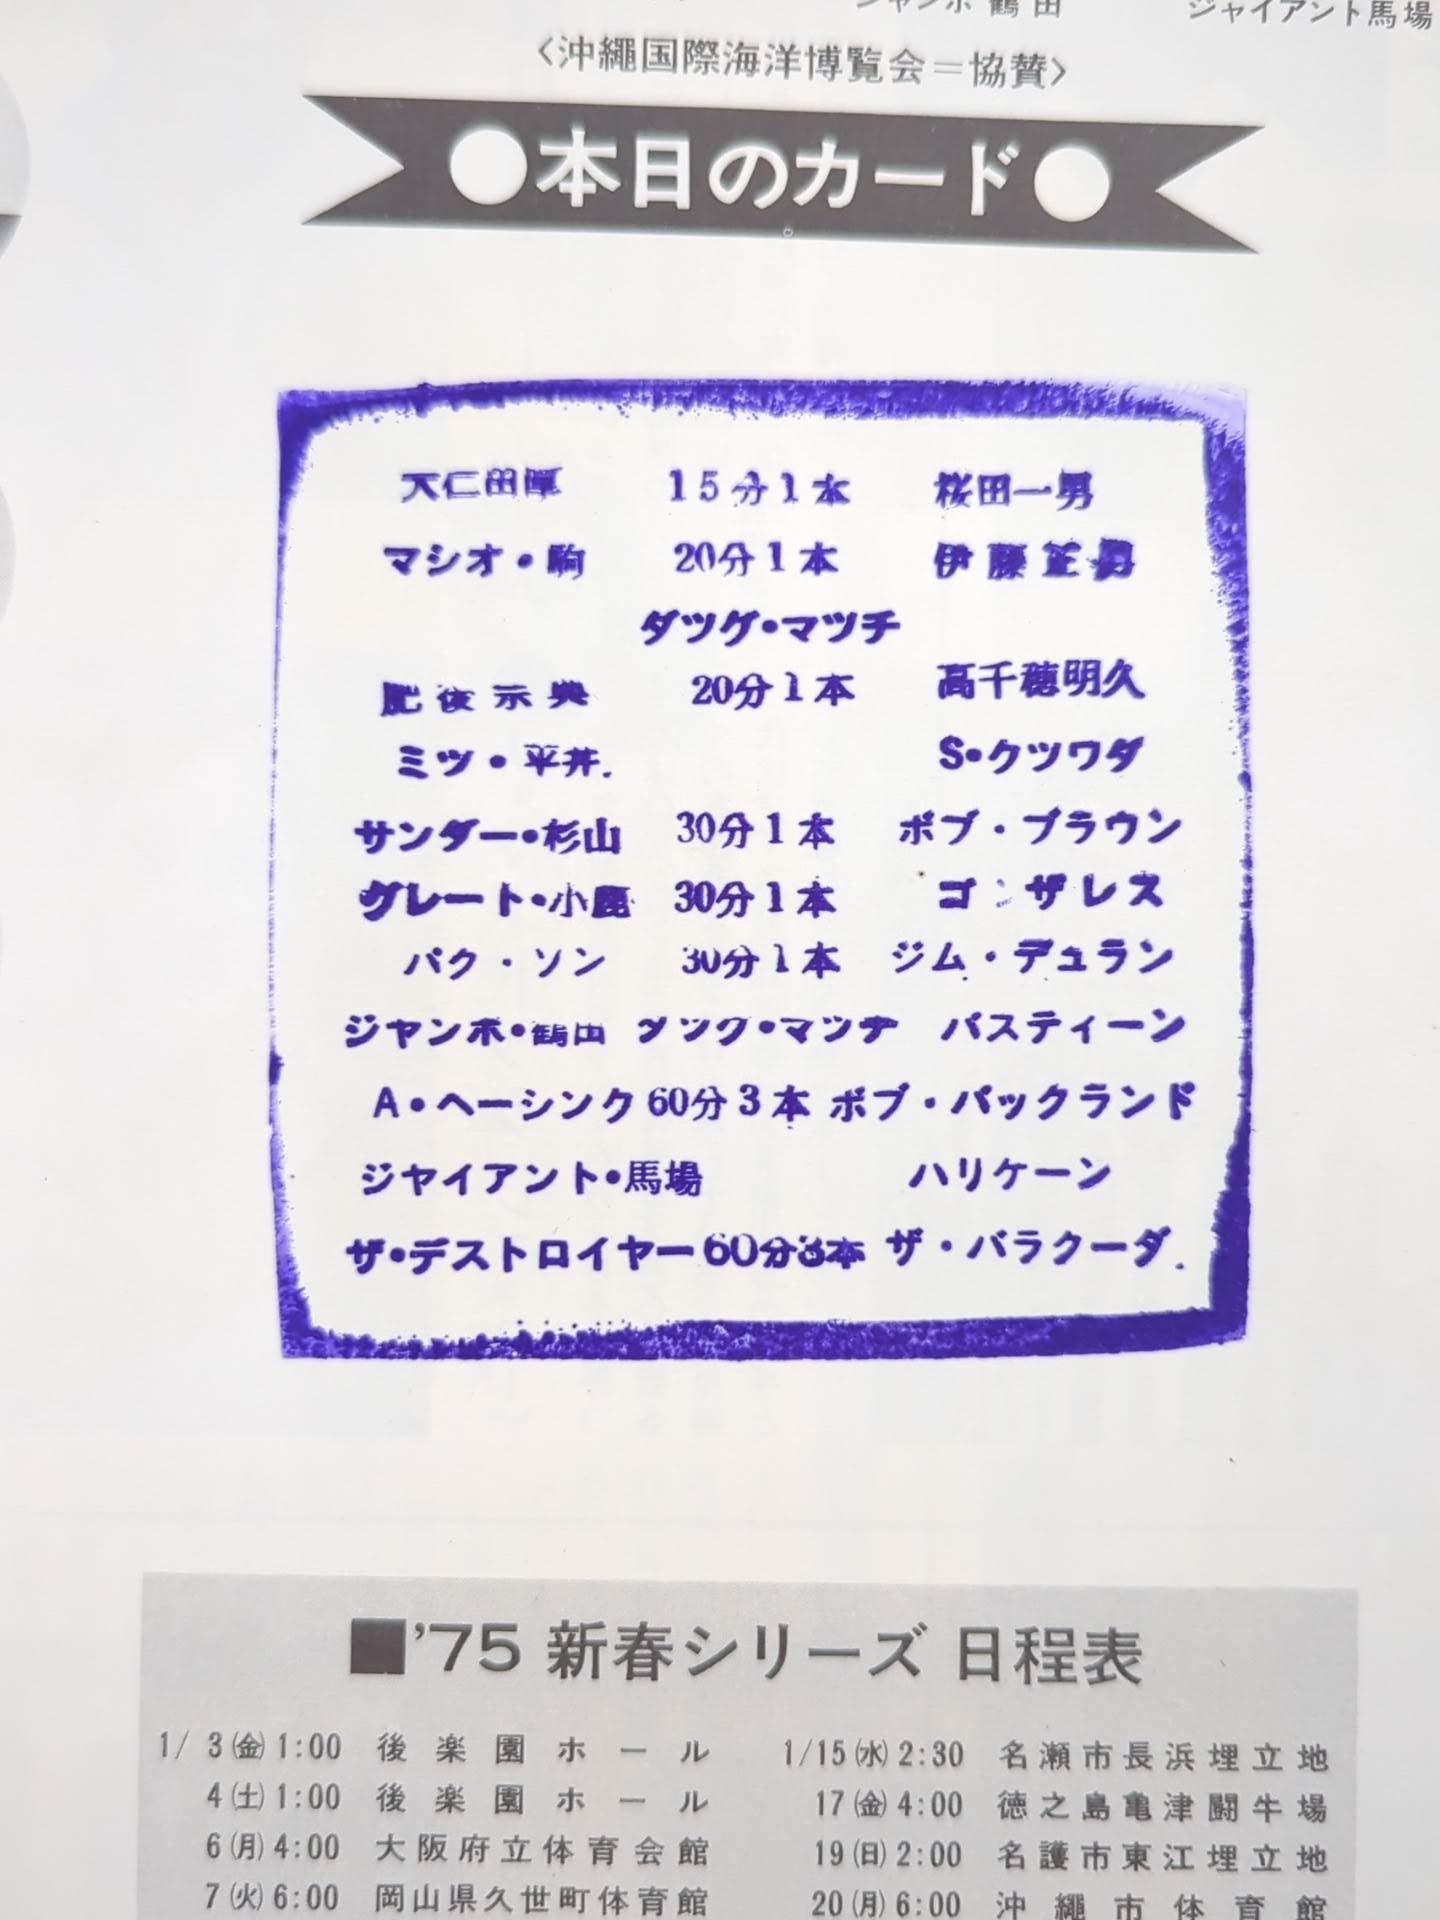 ジャンボ鶴田 ジャイアント馬場
<沖縄国際海洋博覧会=協賛>
●本日のカード●
大仁田厚 15分1本 桜田一男
マシオ・駒 20分1本 伊藤正男
タツグ・マツチ
肥後宗典 20分1本 高千穂明久
ミツ・平井. S・クツワダ
サンダー・杉山 30分1本 ボブ・ブラウン
グレート・小鹿 30分1本 ゴンザレス
パク・ソン 30分1本 ジム・デュラン
ジヤンボ・鶴田 タツグ・マツチ バスティーン
A・ヘーシンク 60分3本 ボブ・バックランド
ジヤイアント・馬場 ハリケーン
ザ・デストロイヤー 60分3本 ザ・バラクーダ.
■'75 新春シリーズ 日程表
1/3(金)1:00 後楽園ホール 1/15(水)2:30 名瀬市長浜埋立地
4(土)1:00 後楽園ホール 17(金)4:00 徳之島亀津闘牛場
6(月)4:00 大阪府立体育会館 19(日)2:00 名護市東江埋立地
7(火)6:00 岡山県久世町体育館 20(月)6:00 沖縄市体育館